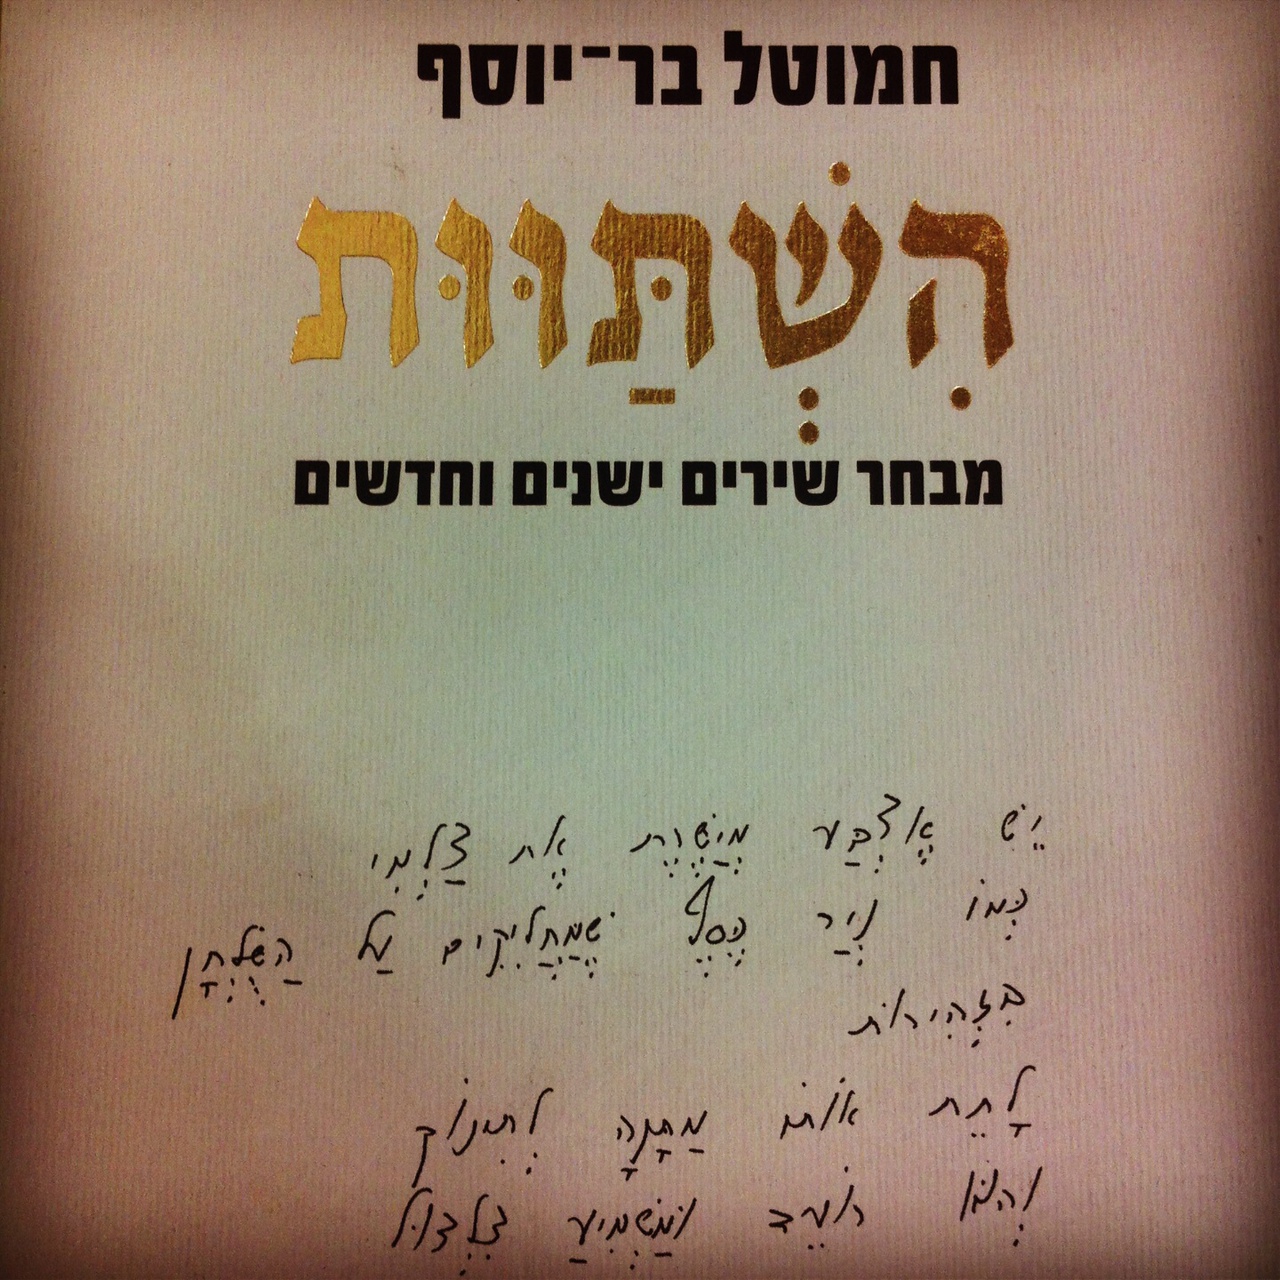 חמוטל בר־יוסף
הִשְׁתַּוּוּת
מבחר שירים ישנים וחדשים
יֵשׁ אֶצְבַּע מְיַשֶּׁרֶת אֶת צַלְמִי
כְּמוֹ נְיַר כֶּסֶף שֶׁמַּחֲלִיקִים עַל הַשֻּׁלְחָן
בִּזְהִירוּת
לָתֵת אוֹתוֹ מַתָּנָה לְתִינוֹק
וְהוּא רוֹעֵד וּמַשְׁמִיעַ צִלְצוּל